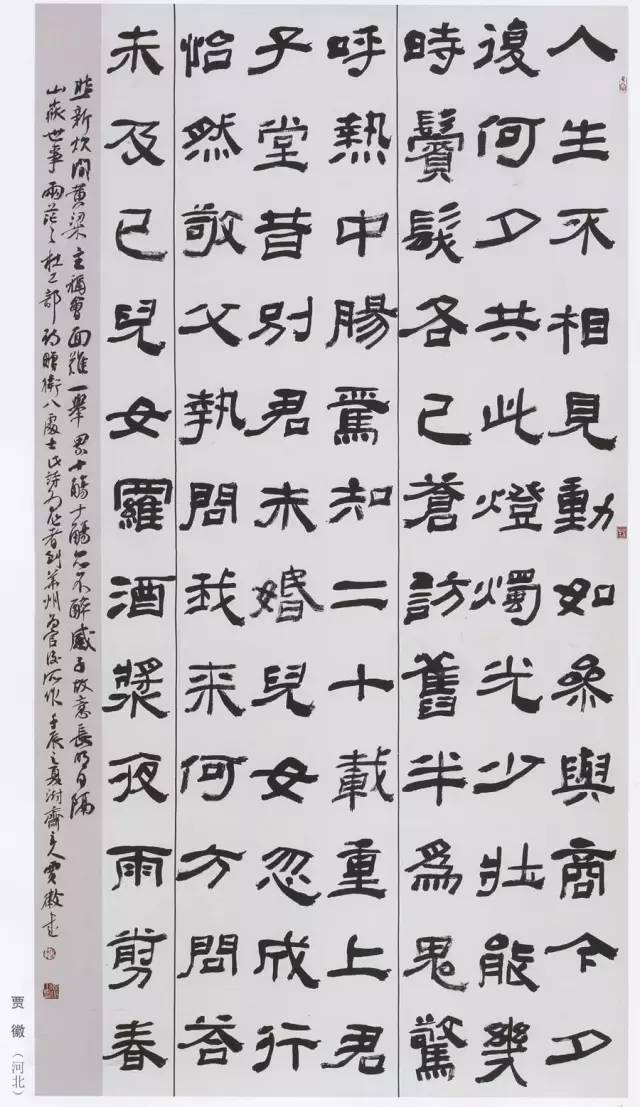 人生不相見動如參與商今夕
復何夕共此燈燭光少壯能幾
時鬢髮各已蒼訪舊半爲鬼驚
呼熱中腸焉知二十載重上君
子堂昔別君未婚兒女忽成行
怡然敬父執問我來何方問答
未及已兒女羅酒漿夜雨剪春
韭新炊間黄粱主稱會面難一舉累十觴十觴亦不醉感子故意長明日隔
山嶽世事兩茫々杜工部詩贈衛八處士此詩爲作者到華州爲官後所作壬辰之夏澍齋主人賈徽書
贾徽（河北）